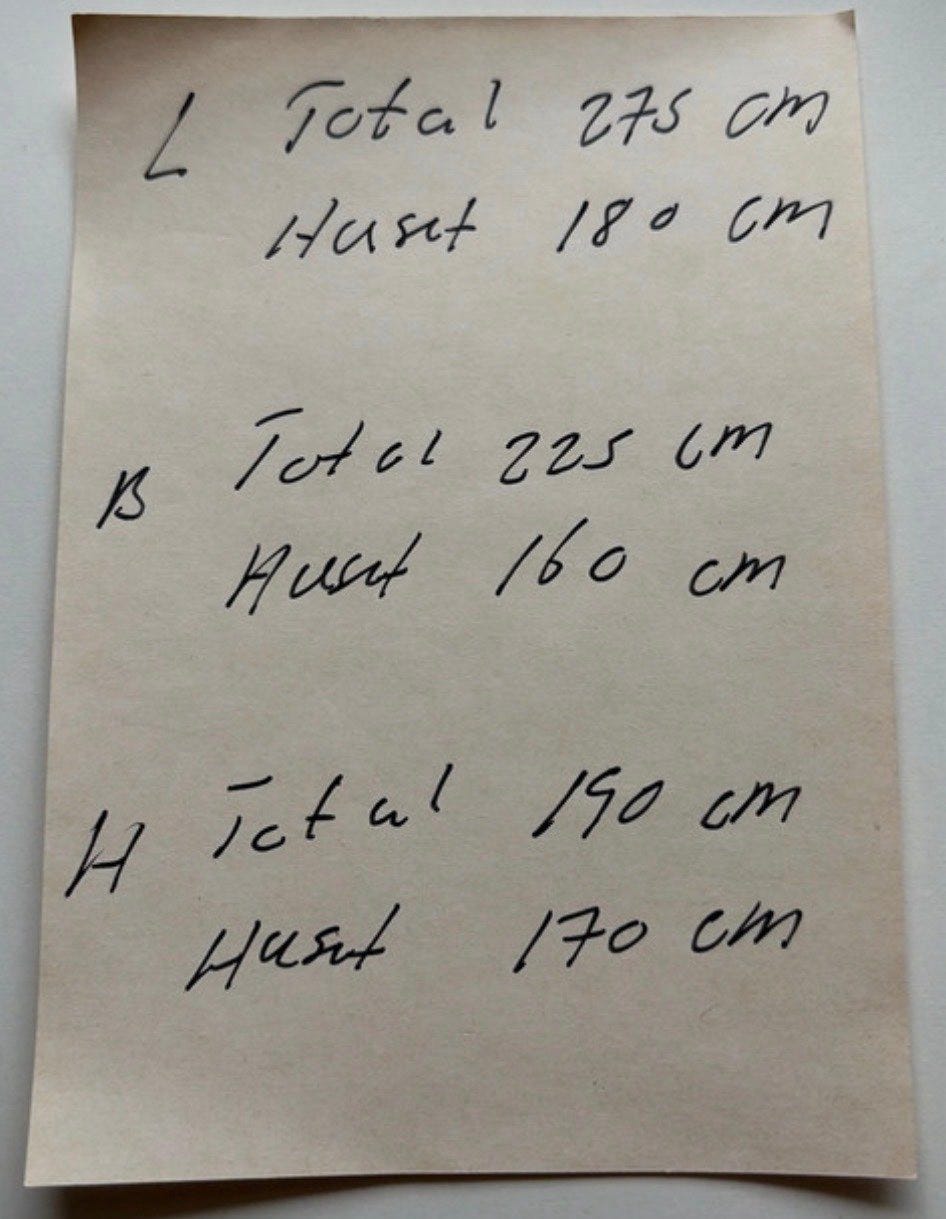 L Total 275 cm
Huset 180 cm
B Total 225 cm
Huset 160 cm
H Total 190 cm
Huset 170 cm